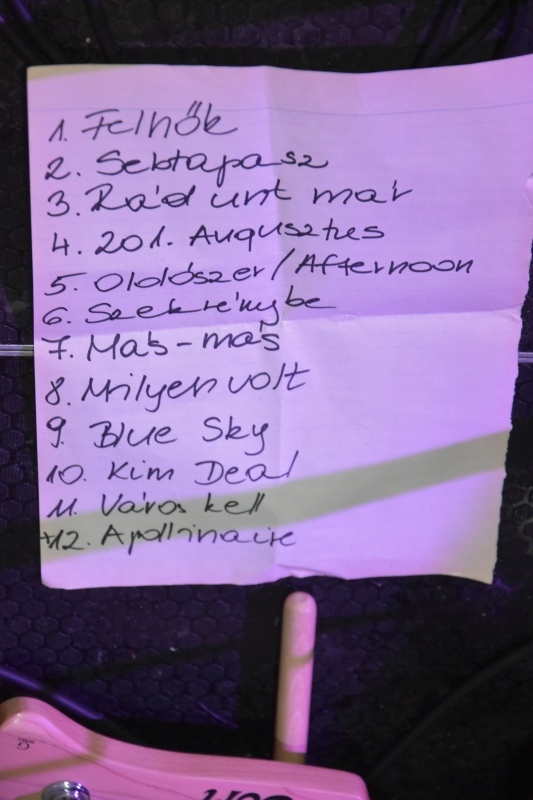 1. Felnők
2. Sebtapasz
3. Rád unt már
4. 201. Augusztus
5. Oldószer / Afternoon
6. Szekrénybe
7. Más-más
8. Milyen volt
9. Blue Sky
10. Kim Deal
11. Város kell
+12. Apollinaire